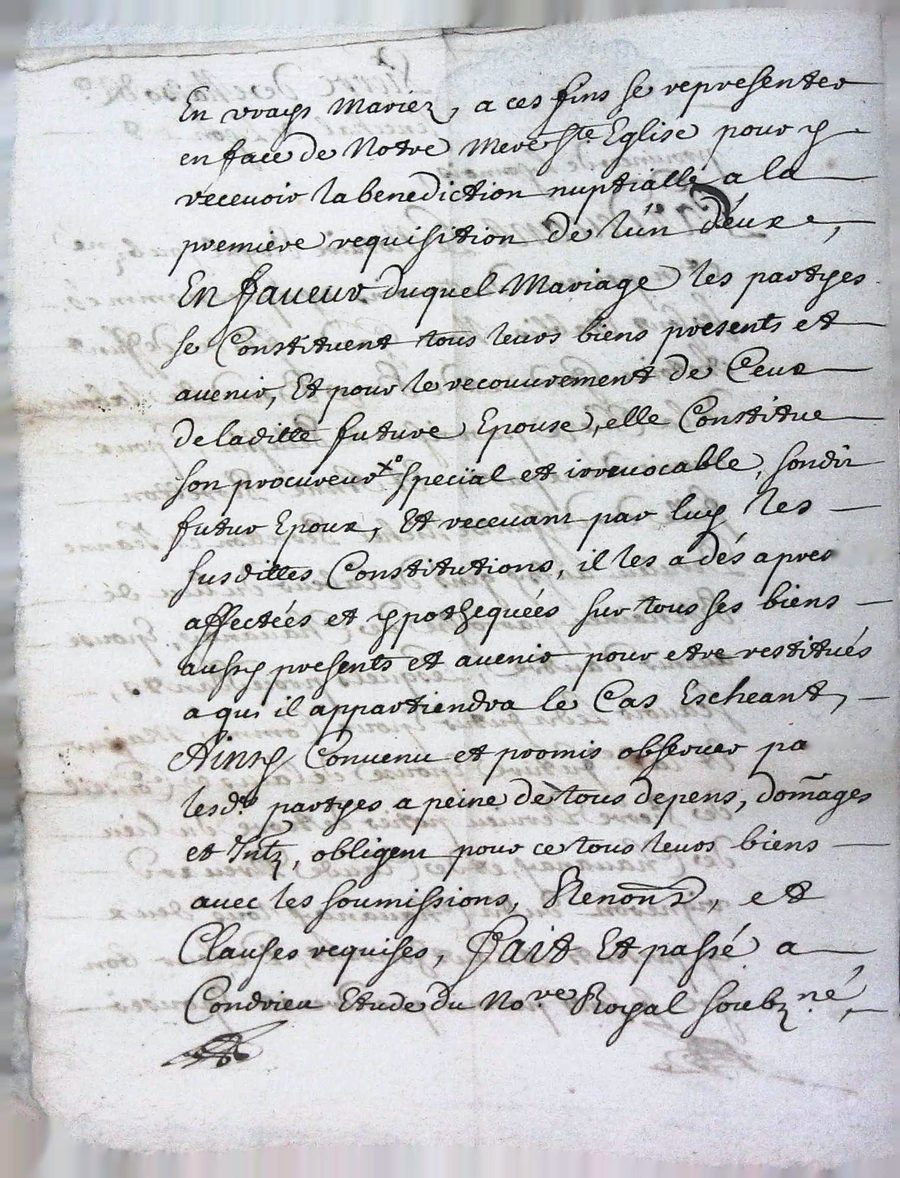 En vrays Mariez, a ces fins se representer
en face de Notre Mere Ste Eglise pour y
recevoir la benediction nuptialle a la
premiere requisition de l'un d'eux,
En faveur duquel Mariage les partyes
se Constituent tous leurs biens presents et
avenir, Et pour le recouvrement de Ceux
de laditte future Epouse, elle Constitue
son procureur xo special et irrevocable, sondit
futur Epoux, Et recevant par luy les
susdittes Constitutions, il les a dés apres
affectées et ypothequées sur tous ses biens
aussy presents et avenir pour etre restitués
a qui il appartiendra le Cas Escheant,
Ainsy Convenu et promis observer pa
lesds partyes a peine de tous depens, domages
et Intz, obligent pour ce tous leurs biens
avec les soumissions, Renonz, et
Clauses requises, fait Et passé a
Condrieu Etude du Nore Royal soubzné,